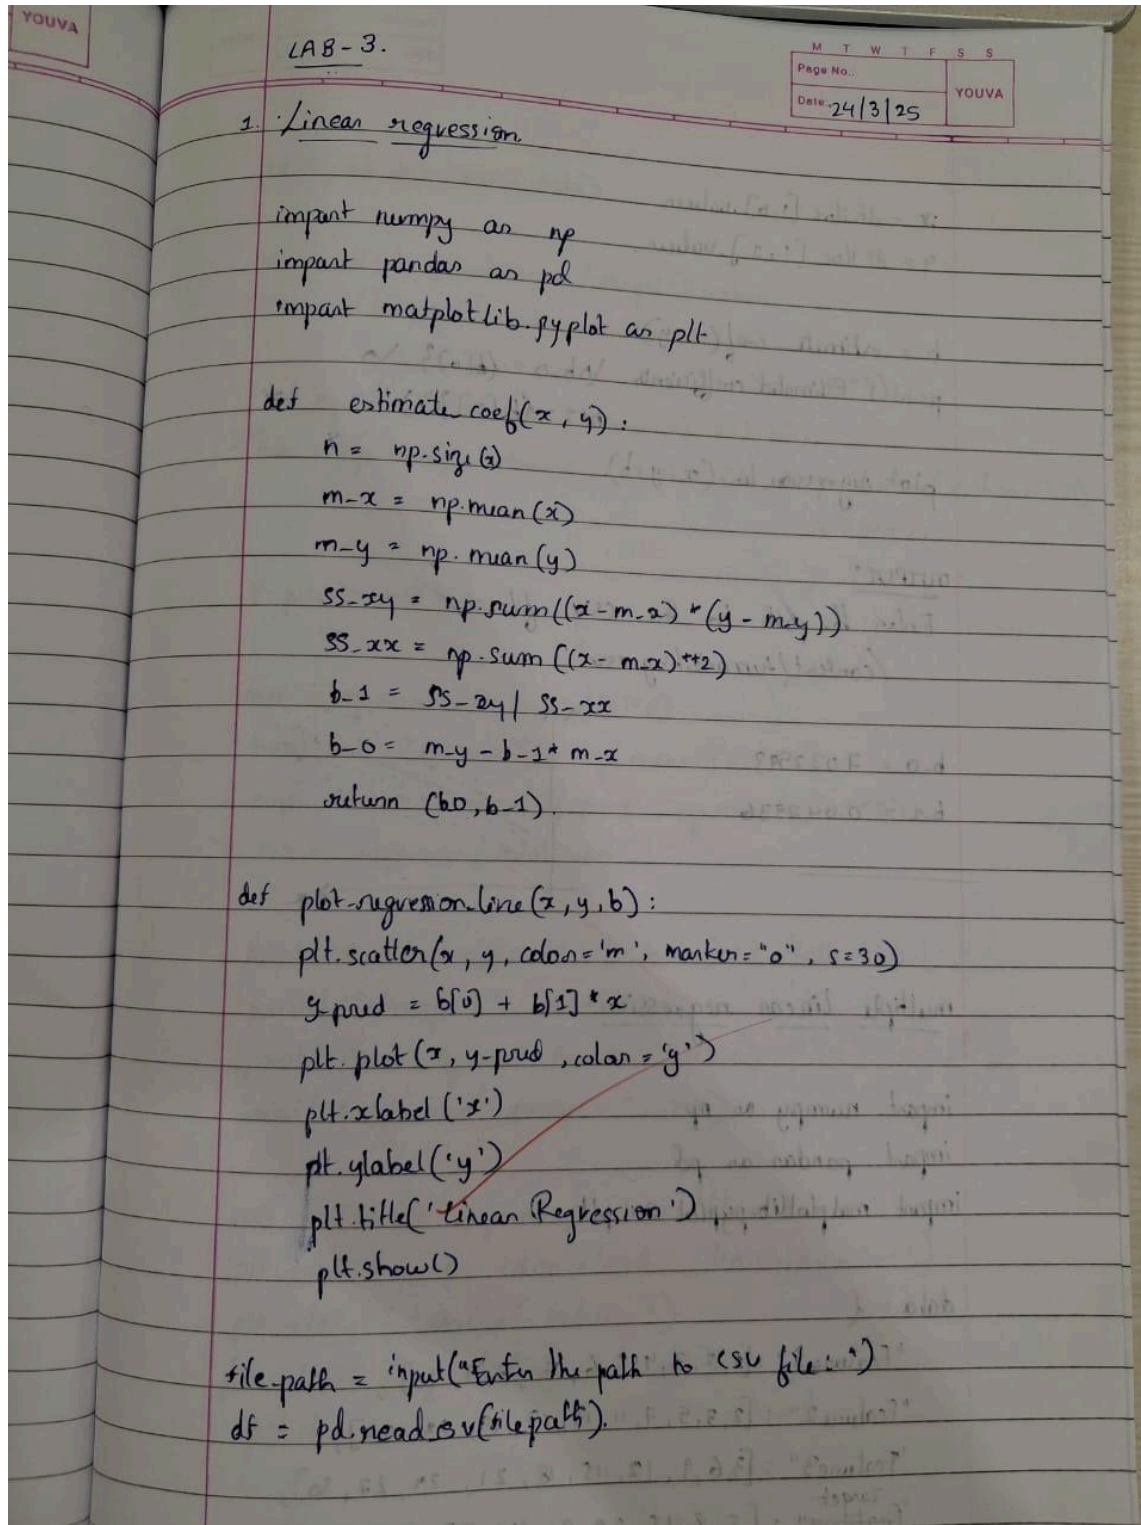 YOUVA
LAB-3.
M T W T F S S
Page No.:
YOUVA
Date: 24/3/25
1. Linear regression
import numpy as np
import pandas as pd
import matplotlib.pyplot as plt
def estimate_coef(x, y):
n = np.size(x)
m_x = np.mean(x)
m_y = np.mean(y)
ss_xy = np.sum((x - m_x) * (y - m_y))
ss_xx = np.sum((x - m_x)**2)
b_1 = ss_xy / ss_xx
b_0 = m_y - b_1 * m_x
return (b0, b_1).
def plot_regression_line(x, y, b):
plt.scatter(x, y, color='m', marker="o", s=30)
y_pred = b[0] + b[1] * x
plt.plot(x, y_pred, color='g')
plt.xlabel('x')
plt.ylabel('y')
plt.title('Linear Regression')
plt.show()
file_path = input("Enter the path to csv file: ")
df = pd.read_csv(file path).